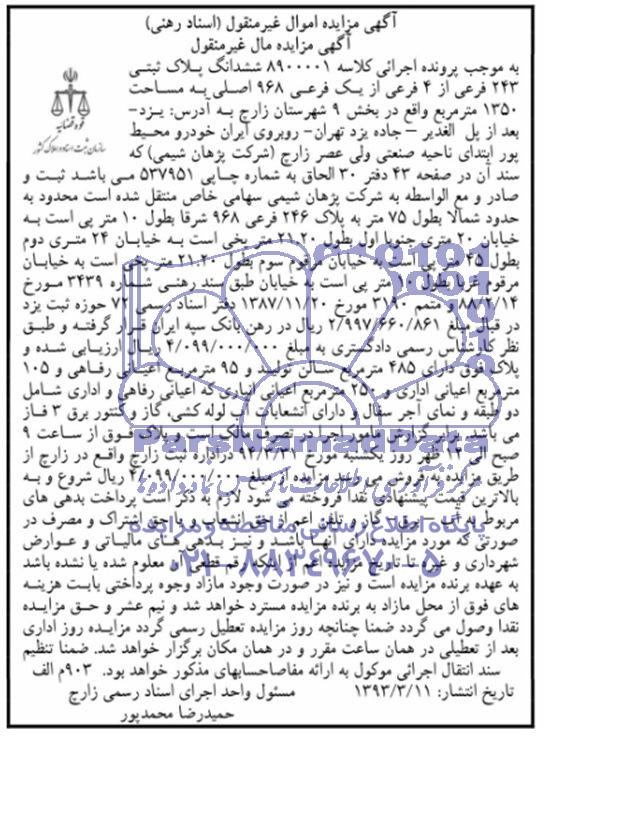 آگهی مزایده اموال غیرمنقول (اسناد رهنی)
آگهی مزایده مال غیرمنقول
به موجب پرونده اجرائی کلاسه ۸۹۰۰۰۰۱ ششدانگ پلاک ثبتی
۲۴۳ فرعی از ۴ فرعی از یک فرعی ۹۶۸ اصلی به مساحت
۱۳۵۰ مترمربع واقع در بخش ۹ شهرستان زارچ به آدرس: یزد-
بعد از پل الغدیر – جاده یزد تهران- روبروی ایران خودرو محیط
پور ابتدای ناحیه صنعتی ولی عصر زارچ (شرکت پژهان شیمی) که
قوه قضائیه
سازمان ثبت اسناد و املاک کشور
سند آن در صفحه ۴۳ دفتر ۳۰ الحاق به شماره چاپی ۵۳۷۹۵۱ می باشد ثبت و
صادر و مع الواسطه به شرکت پژهان شیمی سهامی خاص منتقل شده است محدود به
حدود شمالا بطول ۷۵ متر به پلاک ۲۴۶ فرعی ۹۶۸ شرقا بطول ۱۰ متر پی است به
خیابان ۲۰ متری جنوبا اول بطول ۲۱.۲۰ متر پخی است به خیابان ۲۴ متری دوم
بطول ۴۵ متر پی است به خیابان مرقوم سوم بطول ۲۱.۲۰ متر پخی است به خیابان
مرقوم غربا بطول ۱۰ متر پی است به خیابان طبق سند رهنی شماره ۳۴۳۹ مورخ
۸۸/۲/۱۴ و متمم ۳۱۹۰ مورخ ۱۳۸۷/۱۱/۲۰ دفتر اسناد رسمی ۷۲ حوزه ثبت یزد
در قبال مبلغ ۲/۹۹۷/۶۶۰/۸۶۱ ریال در رهن بانک سپه ایران قرار گرفته و طبق
نظر کارشناس رسمی دادگستری به مبلغ ۴/۰۹۹/۰۰۰/۰۰۰ ریال ارزیابی شده و
پلاک فوق دارای ۴۸۵ مترمربع سالن تولید و ۹۵ مترمربع اعیانی رفاهی و ۱۰۵
مترمربع اعیانی اداری و ۲۵۰ مترمربع اعیانی انباری که اعیانی رفاهی و اداری شامل
دو طبقه و نمای آجر سفال و دارای انشعابات آب لوله کشی، گاز و کنتور برق ۳ فاز
می باشد. برابر گزارش مامور اجرا در تصرف مالک است و پلاک فوق از ساعت ۹
صبح الی ۱۲ ظهر روز یکشنبه مورخ ۹۳/۳/۳۱ در اداره ثبت زارچ واقع در زارچ از
طریق مزایده به فروش می رسد مزایده از مبلغ ۴/۰۹۹/۰۰۰/۰۰۰ ریال شروع و به
بالاترین قیمت پیشنهادی نقدا فروخته می شود لازم به ذکر است پرداخت بدهی های
مربوط به آب - برق - گاز و تلفن اعم از حق انشعاب و یا حق اشتراک و مصرف در
صورتی که مورد مزایده دارای آنها باشد و نیز بدهی های مالیاتی و عوارض
شهرداری و غیره تا تاریخ مزایده اعم از اینکه رقم قطعی آن معلوم شده یا نشده باشد
به عهده برنده مزایده است و نیز در صورت وجود مازاد وجوه پرداختی بابت هزینه
های فوق از محل مازاد به برنده مزایده مسترد خواهد شد و نیم عشر و حق مزایده
نقدا وصول می گردد ضمنا چنانچه روز مزایده تعطیل رسمی گردد مزایده روز اداری
بعد از تعطیلی در همان ساعت مقرر و در همان مکان برگزار خواهد شد. ضمنا تنظیم
سند انتقال اجرائی موکول به ارائه مفاصاحسابهای مذکور خواهد بود. ۹۰۳م الف
تاریخ انتشار: ۱۳۹۳/۳/۱۱ مسئول واحد اجرای اسناد رسمی زارچ
حمیدرضا محمدپور
ParsNamadData
پایگاه اطلاع رسانی مناقصه و مزایده
۰۲۱-۸۸۳۴۹۶۷۰-۵